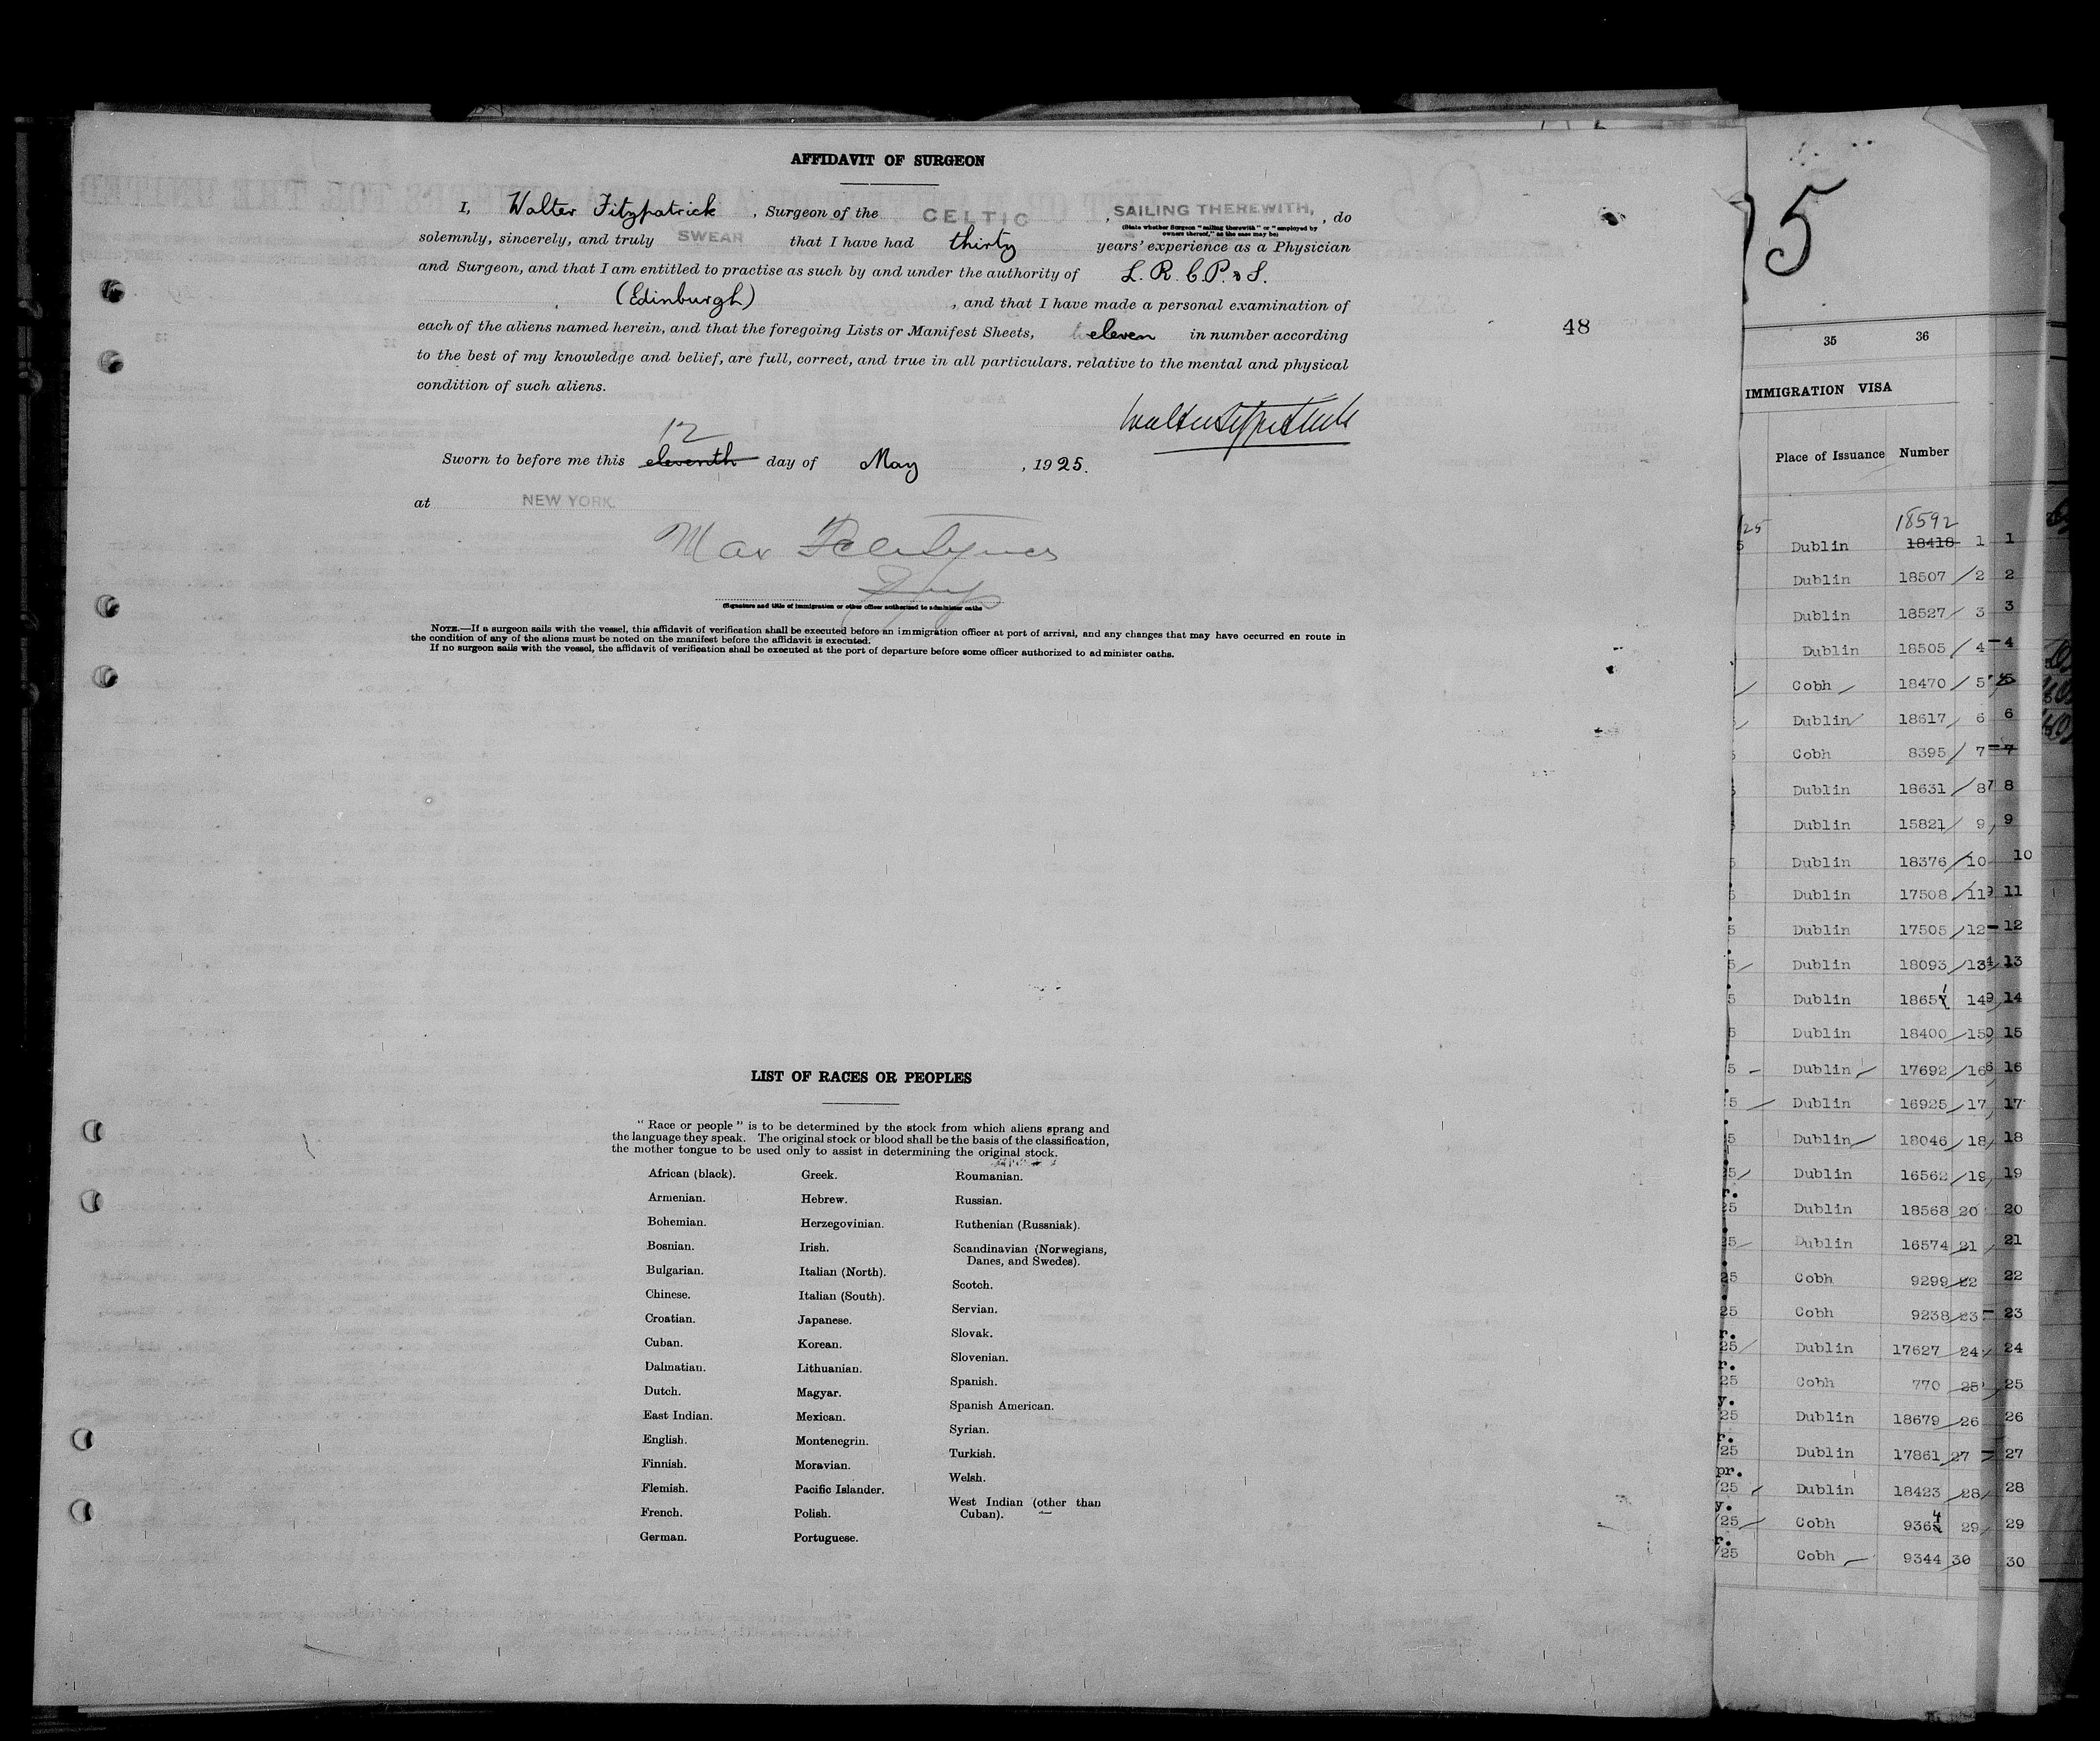 AFFIDAVIT OF SURGEON
I, Walter Fitzpatrick, Surgeon of the CELTIC, SAILING THEREWITH, , do
(State whether Surgeon "sailing therewith" or "employed by
owners thereof," as the case may be)
solemnly, sincerely, and truly SWEAR that I have had thirty years' experience as a Physician
and Surgeon, and that I am entitled to practise as such by and under the authority of L. R. C. P. & S.
(Edinburgh) , and that I have made a personal examination of
each of the aliens named herein, and that the foregoing Lists or Manifest Sheets, eleven in number according
to the best of my knowledge and belief, are full, correct, and true in all particulars. relative to the mental and physical
condition of such aliens.
Walter Fitzpatrick
12
Sworn to before me this eleventh day of May , 1925.
at NEW YORK
Max
(Signature and title of immigration or other officer authorized to administer oaths
NOTE.—If a surgeon sails with the vessel, this affidavit of verification shall be executed before an immigration officer at port of arrival, and any changes that may have occurred en route in
the condition of any of the aliens must be noted on the manifest before the affidavit is executed.
If no surgeon sails with the vessel, the affidavit of verification shall be executed at the port of departure before some officer authorized to administer oaths.
48
LIST OF RACES OR PEOPLES
"Race or people" is to be determined by the stock from which aliens sprang and
the language they speak. The original stock or blood shall be the basis of the classification,
the mother tongue to be used only to assist in determining the original stock.
African (black).
Armenian.
Bohemian.
Bosnian.
Bulgarian.
Chinese.
Croatian.
Cuban.
Dalmatian.
Dutch.
East Indian.
English.
Finnish.
Flemish.
French.
German.
Greek.
Hebrew.
Herzegovinian.
Irish.
Italian (North).
Italian (South).
Japanese.
Korean.
Lithuanian.
Magyar.
Mexican.
Montenegrin.
Moravian.
Pacific Islander.
Polish.
Portuguese.
Roumanian.
Russian.
Ruthenian (Russniak).
Scandinavian (Norwegians,
Danes, and Swedes).
Scotch.
Servian.
Slovak.
Slovenian.
Spanish.
Spanish American.
Syrian.
Turkish.
Welsh.
West Indian (other than
Cuban).
5
35 36
IMMIGRATION VISA
Place of Issuance Number
18592
Dublin 18418 1 1
Dublin 18507 2 2
Dublin 18527 3 3
Dublin 18505 4 4
Cobh 18470 5 5
Dublin 18617 6 6
Cobh 8395 7 7
Dublin 18631 8 8
Dublin 15821 9 9
Dublin 18376 10 10
Dublin 17508 11 11
Dublin 17505 12 12
Dublin 18093 13 13
Dublin 18651 14 14
Dublin 18400 15 15
Dublin 17692 16 16
Dublin 16925 17 17
Dublin 18046 18 18
Dublin 16562 19 19
Dublin 18568 20 20
Dublin 16574 21 21
Cobh 9299 22 22
Cobh 9238 23 23
Dublin 17627 24 24
Cobh 770 25 25
Dublin 18679 26 26
Dublin 17861 27 27
Dublin 18423 28 28
Cobh 9364 29 29
Cobh 9344 30 30